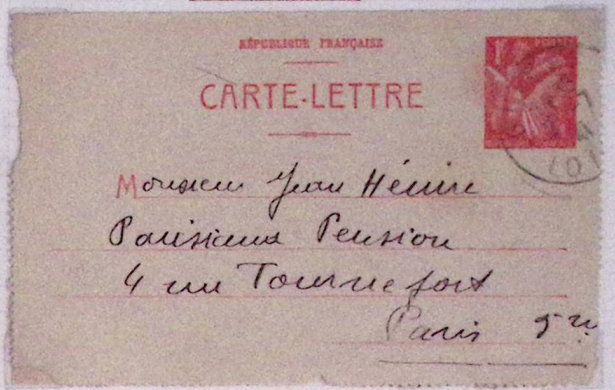 RÉPUBLIQUE FRANÇAISE
1F
CARTE-LETTRE
LOT
Monsieur Jean Hénine
Parisiana Pension
4 rue Tournefort
Paris 5e